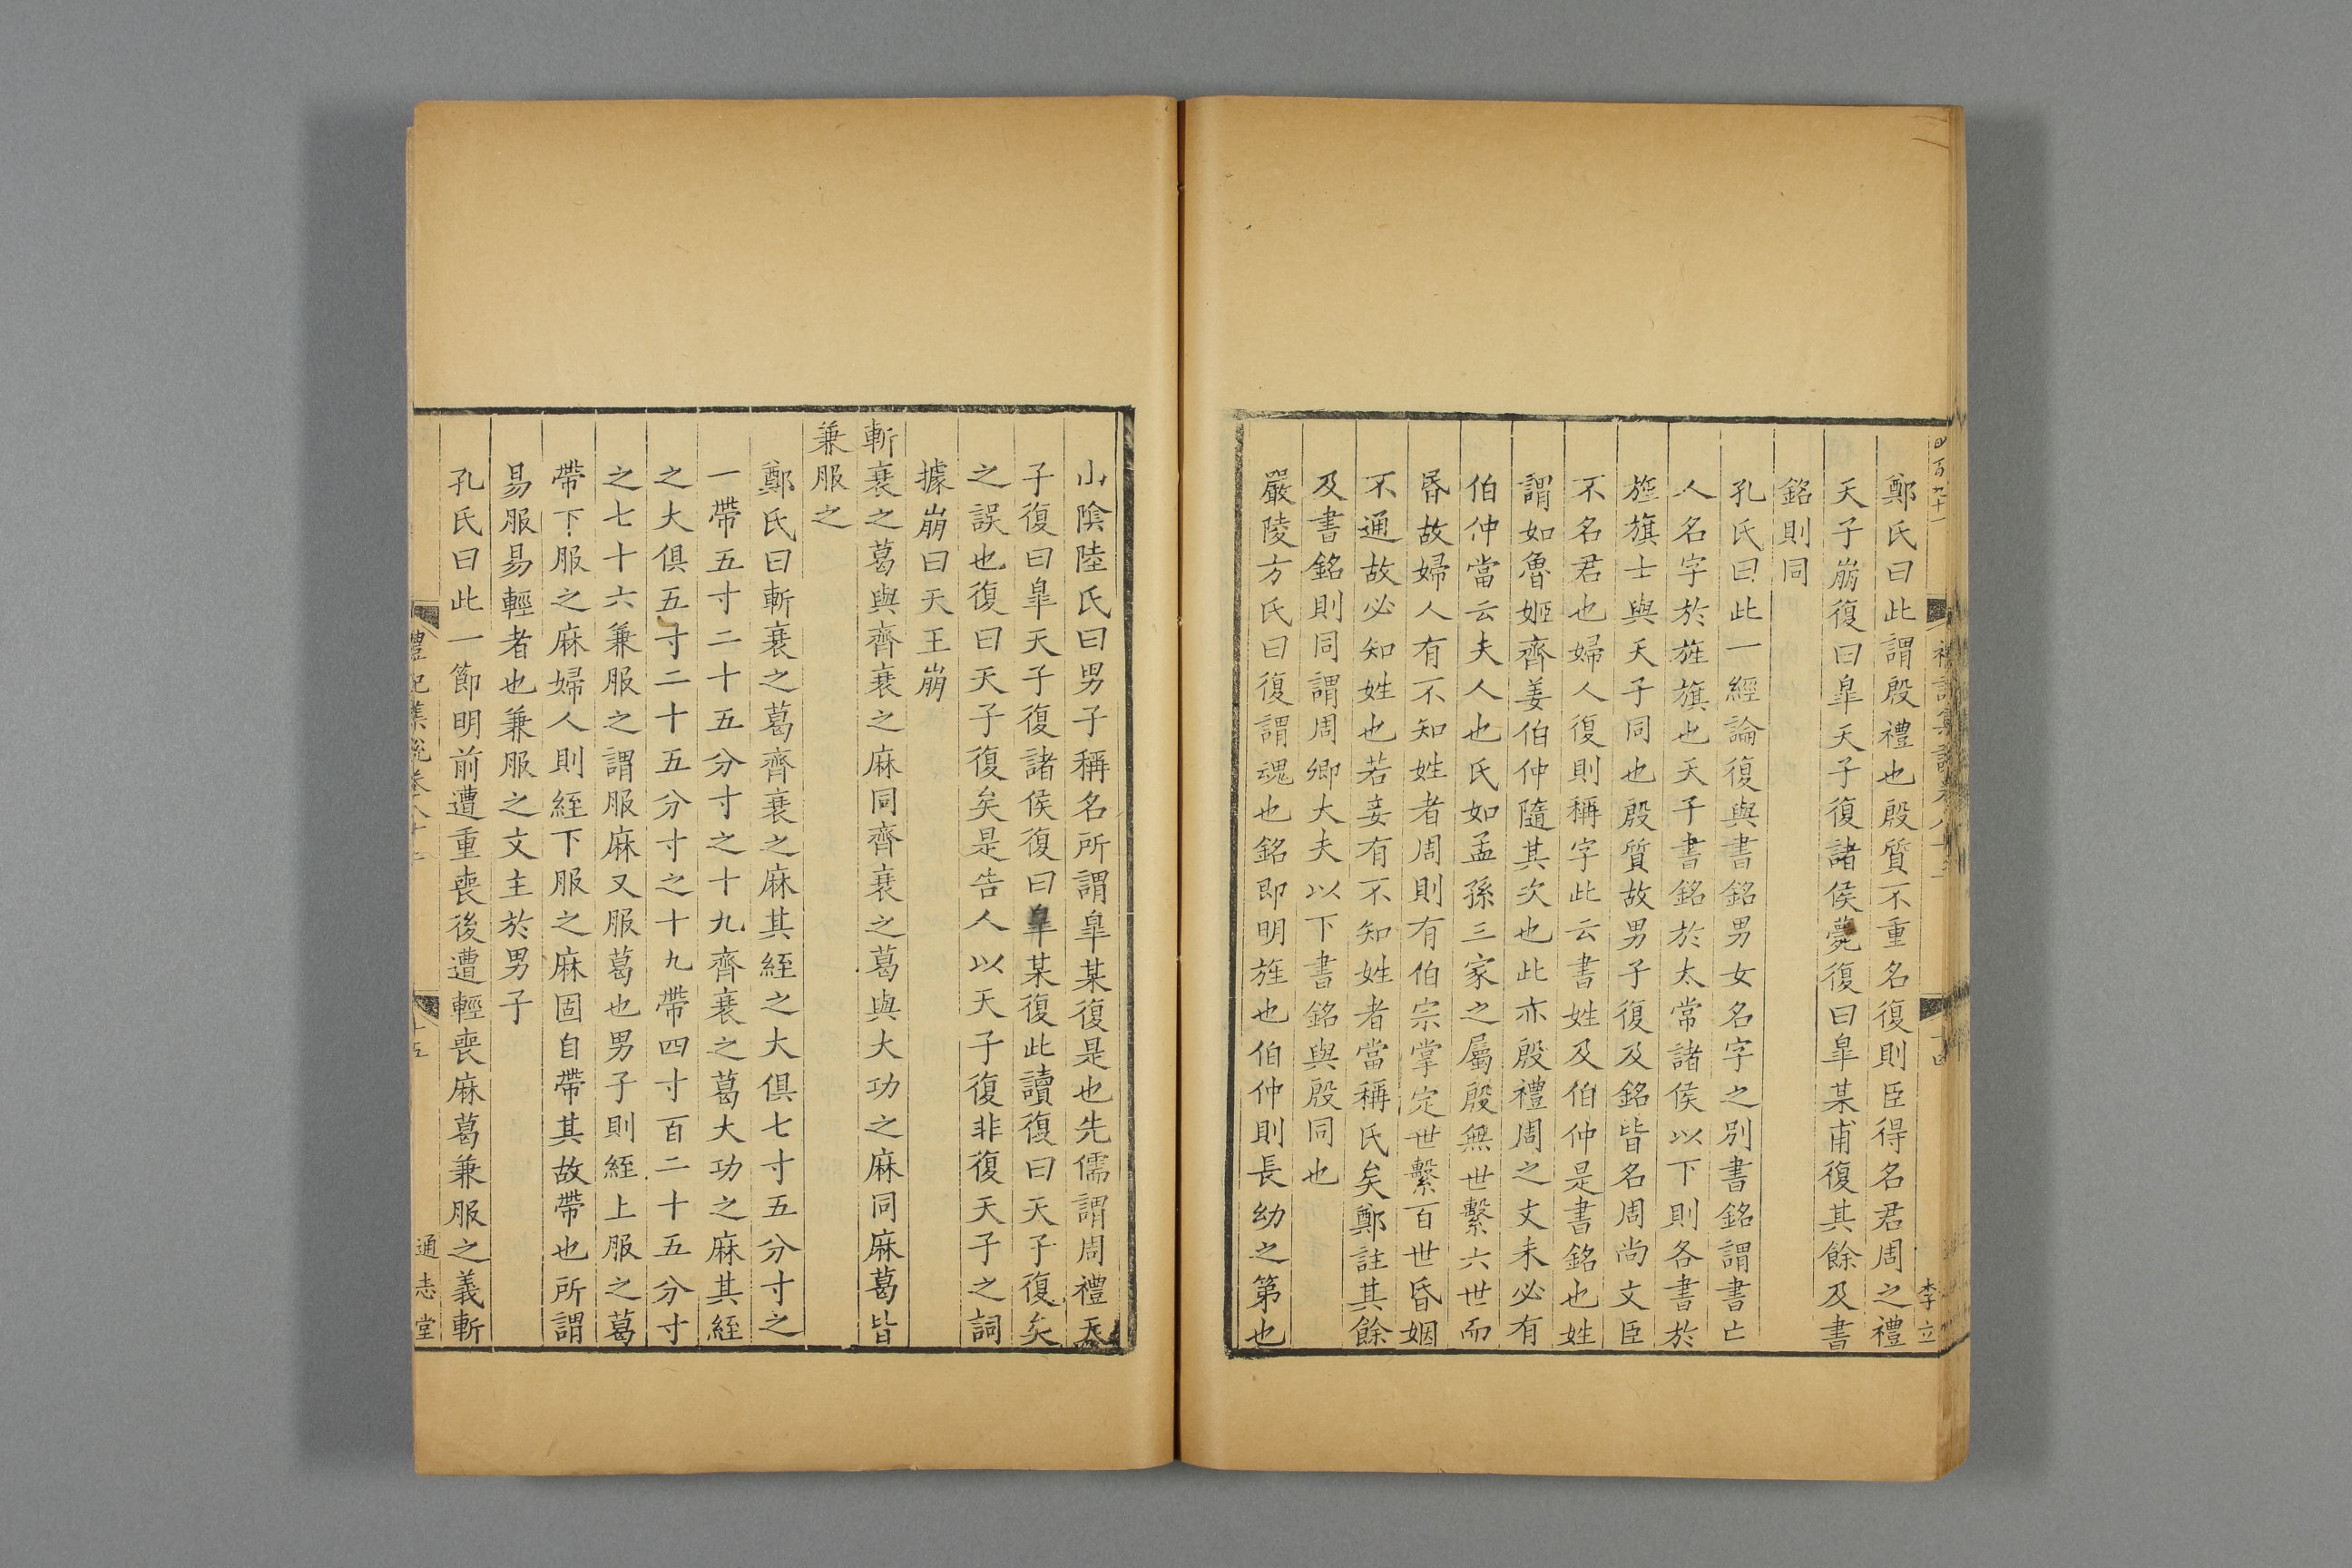 四百九十一
十四
李立
鄭氏曰此謂殷禮也殷質不重名復則臣得名君周之禮
天子崩復曰皐天子復諸侯薨復曰皐某甫復其餘及書
銘則同
孔氏曰此一經論復與書銘男女名字之別書銘謂書亡
人名字於旌旗也天子書銘於太常諸侯以下則各書於
旌旗士與天子同也殷質故男子復及銘皆名周尚文臣
不名君也婦人復則稱字此云書姓及伯仲是書銘也姓
謂如魯姬齊姜伯仲隨其次也此亦殷禮周之文未必有
伯仲當云夫人也氏如孟孫三家之屬殷無世繫六世而
昏故婦人有不知姓者周則有伯宗掌定世繫百世昏姻
不通故必知姓也若妾有不知姓者當稱氏矣鄭註其餘
及書銘則同謂周卿大夫以下書銘與殷同也
嚴陵方氏曰復謂魂也銘即明旌也伯仲則長幼之第也
山陰陸氏曰男子稱名所謂皐某復是也先儒謂周禮天
子復曰皐天子復諸侯復曰皐某復此讀復曰天子復矣
之誤也復曰天子復矣是告人以天子復非復天子之詞
據崩曰天王崩
斬衰之葛與齊衰之麻同齊衰之葛與大功之麻同麻葛皆
兼服之
鄭氏曰斬衰之葛齊衰之麻其絰之大俱七寸五分寸之
一帶五寸二十五分寸之十九齊衰之葛大功之麻其絰
之大俱五寸二十五分寸之十九帶四寸百二十五分寸
之七十六兼服之謂服麻又服葛也男子則絰上服之葛
帶下服之麻婦人則絰下服之麻固自帶其故帶也所謂
易服易輕者也兼服之文主於男子
孔氏曰此一節明前遭重喪後遭輕喪麻葛兼服之義斬
禮記集說卷八十二
十五
通志堂